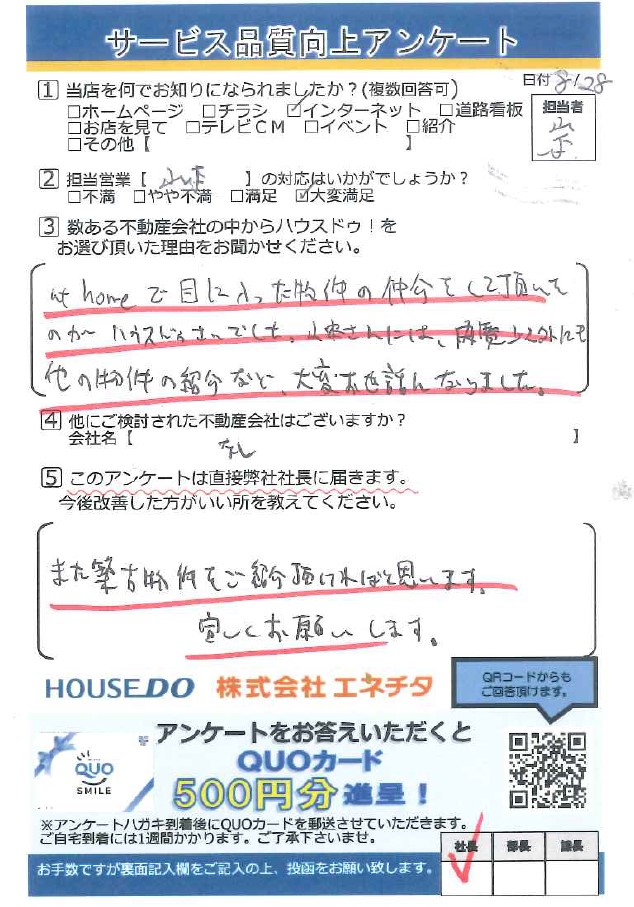 サービス品質向上アンケート
日付 8/28
1 当店を何でお知りになられましたか？(複数回答可)
□ホームページ □チラシ ☑インターネット □道路看板
□お店を見て □テレビCM □イベント □紹介
□その他【 】
担当者
2 担当営業【 】の対応はいかがでしょうか？
□不満 □やや不満 □満足 ☑大変満足
3 数ある不動産会社の中からハウスドゥ！を
お選び頂いた理由をお聞かせください。
at homeで目に入った物件の仲介をして頂いた
のがハウスドゥさんでした。さんには、以外にも
他の物件の紹介など、大変お世話になりました。
4 他にご検討された不動産会社はございますか？
会社名【 なし 】
5 このアンケートは直接弊社社長に届きます。
今後改善した方がいい所を教えてください。
また築古物件をご紹介頂ければと思います。
宜しくお願いします。
HOUSEDO 株式会社 エネチタ
QRコードからも
ご回答頂けます。
アンケートをお答えいただくと
QUOカード
500円分進呈！
QUO
SMILE
※アンケートハガキ到着後にQUOカードを郵送させていただきます。
ご自宅到着には1週間かかります。ご了承下さいませ。
社長 部長 課長
お手数ですが裏面記入欄をご記入の上、投函をお願い致します。